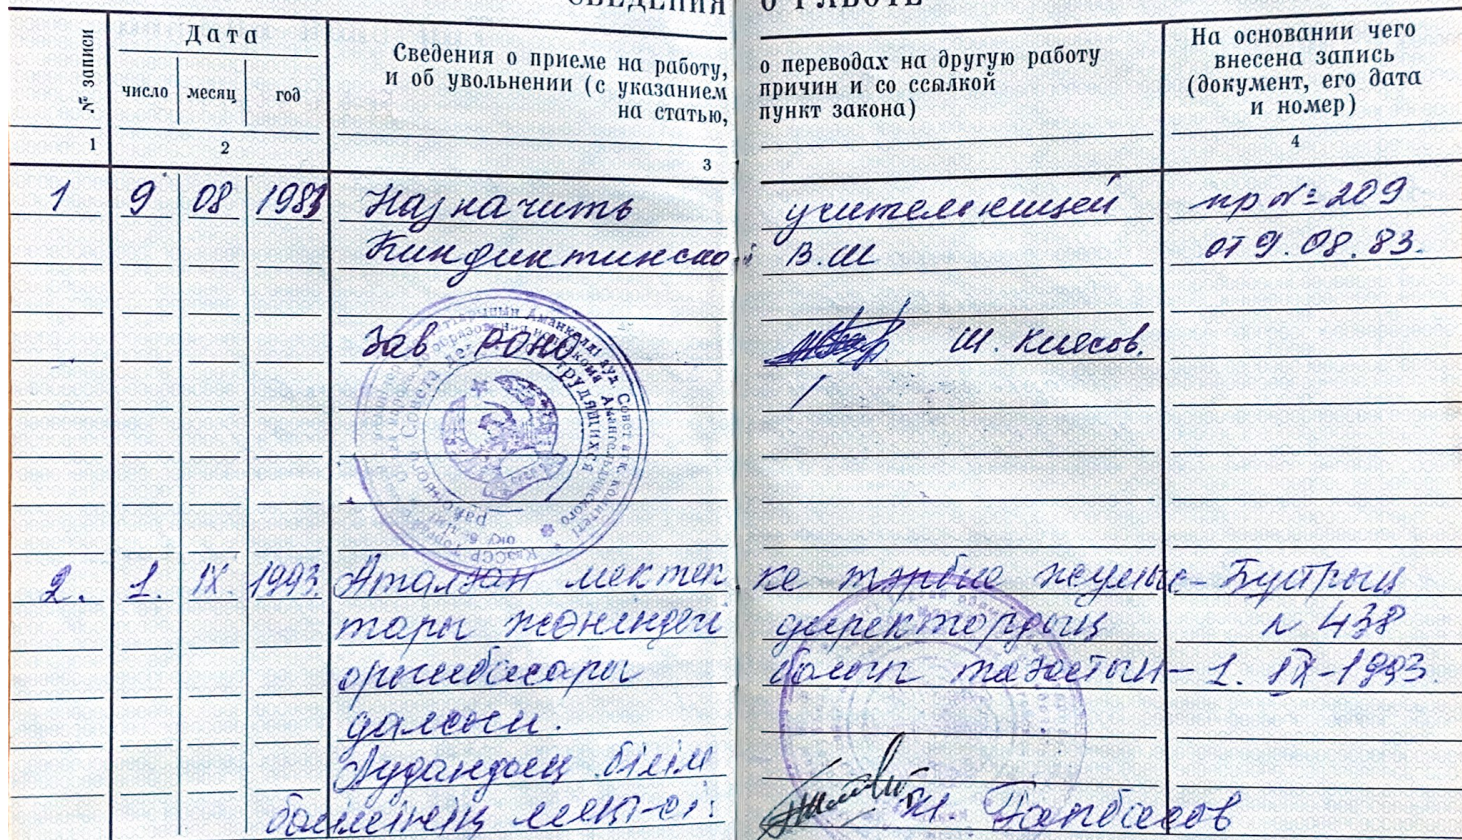 СВЕДЕНИЯ О РАБОТЕ
№ записи
Дата
число месяц год
Сведения о приеме на работу, о переводах на другую работу
и об увольнении (с указанием причин и со ссылкой
на статью, пункт закона)
На основании чего
внесена запись
(документ, его дата
и номер)
1 2 3 4
1 9 08 1983 Назначить учительницей пр № 209
Киндиктинской В.Ш от 9.08.83.
Зав РОНО Ш. Киясов.
2. 1. IX. 1993. Аталған мектепке тәрбие жұмыс- Бұйрық
тары жөніндегі директордың № 438
орынбасары болып тағайын- 1. IX-1993.
далсын.
Аудандық білім
бөлімінің меңг-сі: